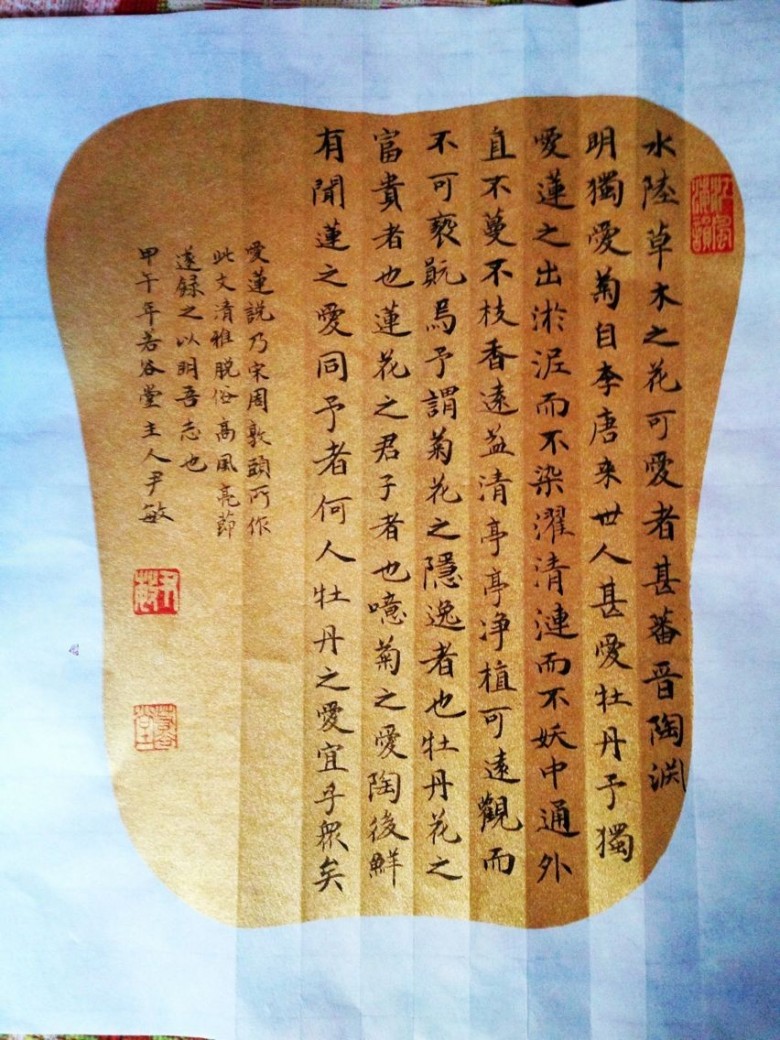 水陸草木之花可愛者甚蕃晋陶渊
明獨愛菊自李唐来世人甚愛牡丹予獨
愛蓮之出淤泥而不染濯清漣而不妖中通外
直不蔓不枝香遠益清亭亭净植可遠觀而
不可褻翫焉予謂菊花之隱逸者也牡丹花之
富貴者也蓮花之君子者也噫菊之愛陶後鮮
有聞蓮之愛同予者何人牡丹之愛宜乎衆矣
愛蓮説乃宋周敦頭所作
此文清雅脱俗高風亮節
遂録之以明吾志也
甲午年若谷堂主人尹敏
尹敏
若谷堂主